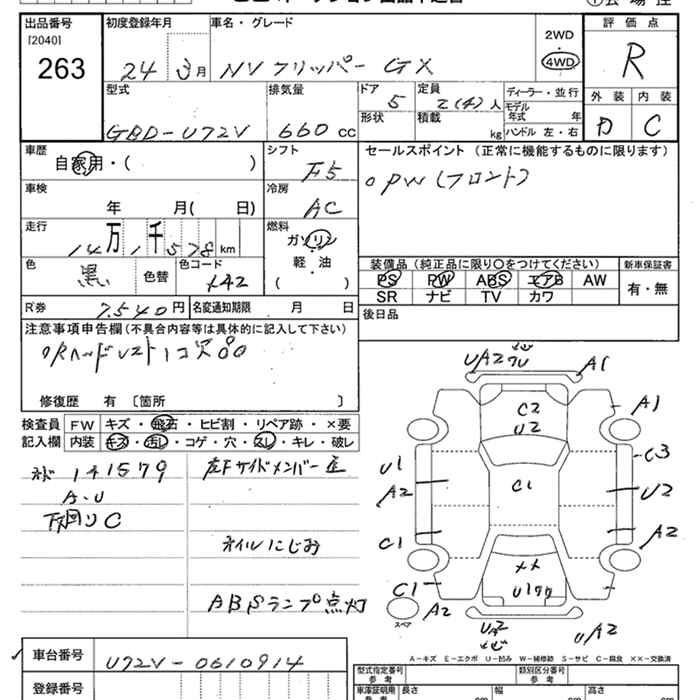 出品番号 初度登録年月 車名・グレード 評価点
[2040]
263
24年 3月
NVクリッパー GX
2WD
4WD
R
型式 排気量 ドア 定員 ディーラー・並行 外装 内装
GBD-U72V 660cc 5 2(4)人
モデル年式 年
形状 積載 kg ハンドル 左・右
D C
車歴 シフト セールスポイント (正常に機能するものに限ります)
自家用・( ) F5
○PW(フロント)
車検 冷房
年 月( 日) AC
走行 燃料
14万1千578km ガソリン
軽・油
( )
色 色替 色コード
黒
装備品 (純正品に限り○をつけてください) 新車保証書
PS PW ABS エアB AW
SR ナビ TV カワ
有・無
R券 7,540円 名変通知期限 月 日
後日品
注意事項申告欄(不具合内容等は具体的に記入して下さい)
修復歴 有 〔箇所 〕
検査員 FW キズ・飛石・ヒビ割・リペア跡・×要
記入欄 内装 キズ・汚れ・コゲ・穴・スレ・キレ・破レ
141579
A・U
下廻りC
左Fサイドメンバー
オイルにじみ
ABSランプ点灯
UA2 A1
C2
U2
A1
U1
A2
C1
C3
U2
A2
C1
C1
A2
スペア
UA2
A-キズ E-エクボ U-凹み W-補修跡 S-サビ C-腐食 XX-交換済
車台番号 U72V-0610914
登録番号
型式指定番号 参考 類別区分番号 参考
車庫証明用 参考 長さ 幅 高さ